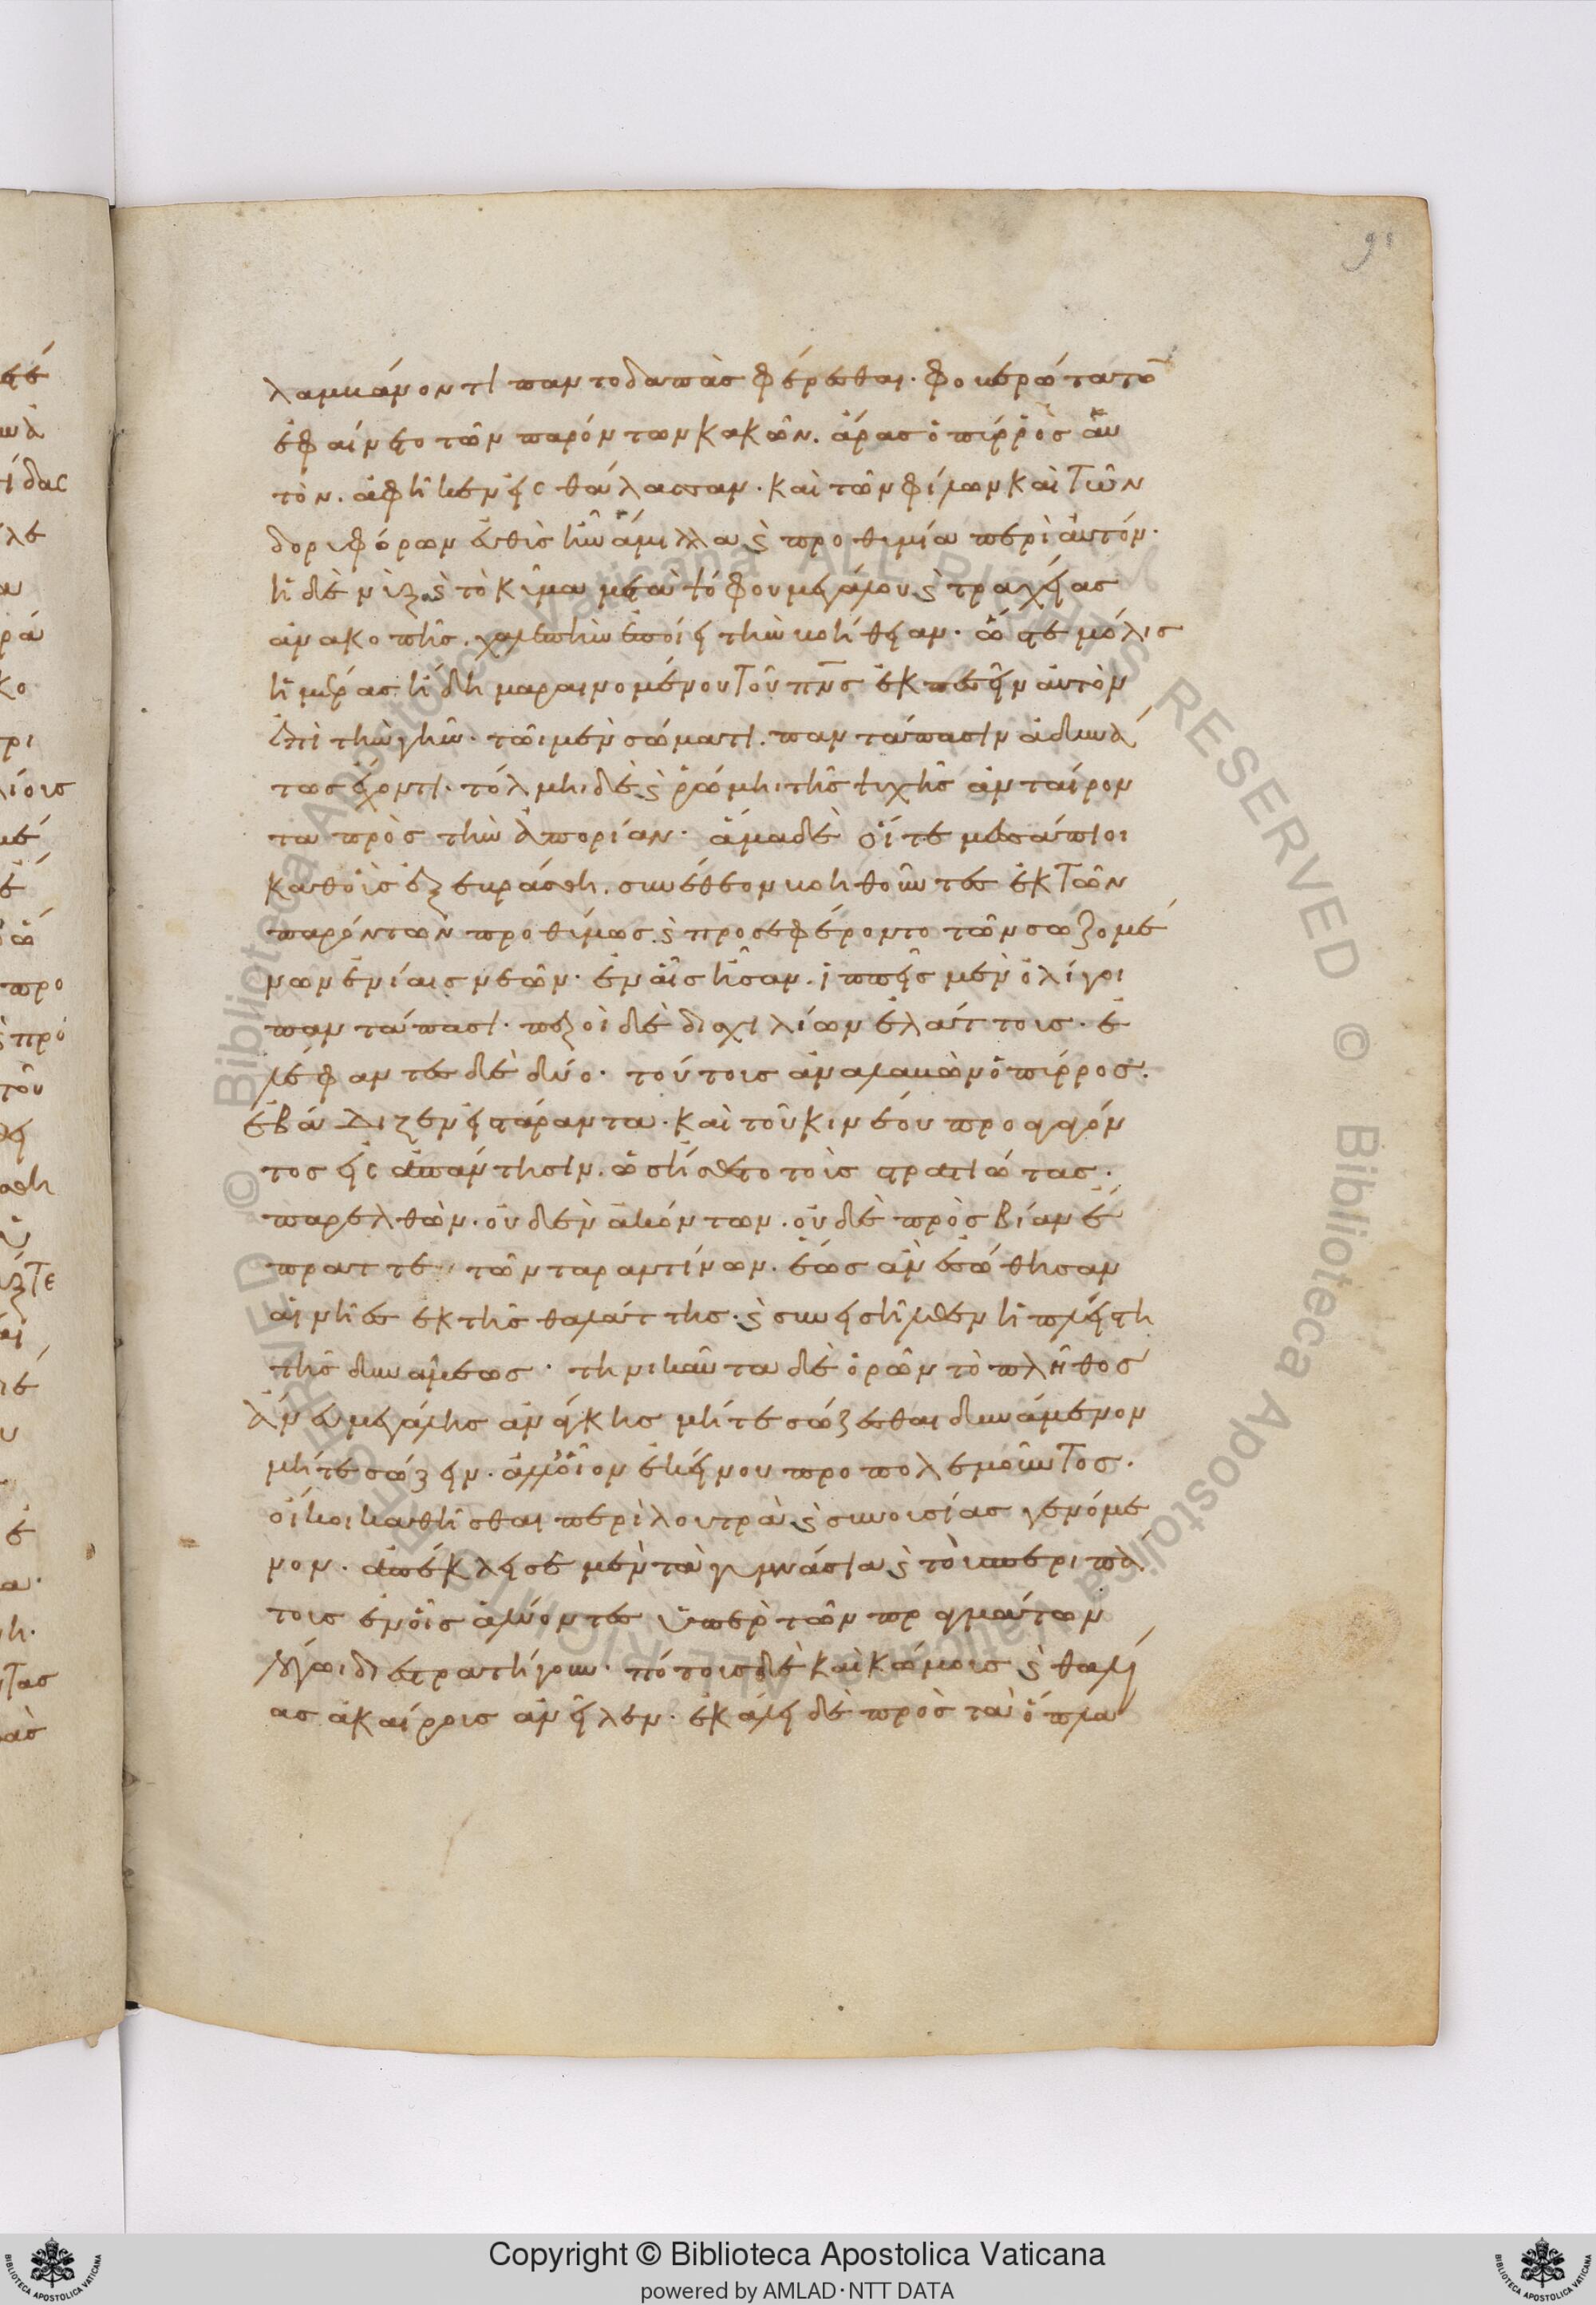 λαμβάνοντι παντοδαπὰσ φέρεσθαι· φοβερώτατο̄
ἐφαίνετο τῶν παρόντων κακῶν. ἄρασ ὁ πύρρὸσ ἁυ
τὸν. ἀφῆκεν εἰς θάλασσαν· καὶ τῶν φίλων καὶ τῶν
δορυφόρων ἐυθὺσ ἦν ἅμιλλα ϛ̀ προθυμία περὶ ἀυτόν·
ἡ δὲ νὺξ ϛ̀ τὸ κῦμα μετὰ ψόφου μεγάλου ϛ̀ τραχείασ
ἀνακοπῆσ. χαλεπὴν ἐποίει τὴν βοήθειαν· ὥστε μόλισ
ἡμέρασ ἤδη μαραινομένου τοῦ πν̅σ ἐκπεσεῖν ἀυτὸν
ἐπὶ τὴν γῆν· τῶι μὲν σώματι. παντάπασιν ἀδυνά
τωσ ἔχοντι· τόλμηι δὲ ϛ̀ ῥώμηι τῆσ ψυχῆσ ἀνταίρον
τα πρὸσ τὴν ἀπορίαν· ἅμα δὲ οἵ τε μεσάπιοι
καθ οὓσ ἐξεβράσθη. συνέθεον βοηθοῦντεσ ἐκ τῶν
παρόντων προθύμωσ. ϛ̀ προσεφέροντο τῶν σωζομέ
νων ἐνίαισ νεῶν· ἐν αἷσ ἦσαν. ἱππεῖσ μὲν ὀλίγοι
παντάπασι· πεζοὶ δὲ διχιλίων ἐλάττουσ· ἐ
λέφαντεσ δὲ δύο· τούτουσ ἀναλαβὼν ὁ πύρροσ.
ἐβάδιζεν εἰ τάραντα· καὶ τοῦ κινέου προαγαγόν
τοσ εἰς ἀπάντησιν. ὡσ ἤισθετο τοὺσ στρατιώτασ.
παρελθὼν. οὐδὲν ἀκόντων. οὐδὲ πρὸσ βίαν ἔ
πραττε τῶν ταραντίνων. ἑώσ ἂν ἐσώθησαν
αἱ νῆεσ ἐκ τῆσ θαλάττησ· ϛ̀ συνεισῆλθεν ἡ πλείστη
τῆσ δυνάμεωσ· τηνικαῦτα δὲ ὁρῶν τὸ πλῆθοσ
ἄνευ μεγάλησ ἀνάγκησ μήτε σώζεσθαι δυνάμενον
μήτε σώζειν. ἀλλ οἷον ἐκείνου προπολεμοῦντοσ.
οἴκοι καθῆσθαι περὶ λουτρὰ ϛ̀ συνουσίασ γενόμε
νον· ἀπέκλεισε μὲν τὰ γυμνάσια ϛ̀ τοὺσ περιπά
τουσ ἐν οἷσ ἀλύοντεσ ὑπὲρ τῶν πραγμάτων
λόγωι διεστρατήγουν· πότουσ δὲ καὶ κώμουσ ϛ̀ θαλί
ασ ἀκαίρουσ ἀνεῖλεν· ἐκάλει δὲ πρὸσ τὰ ὅπλα